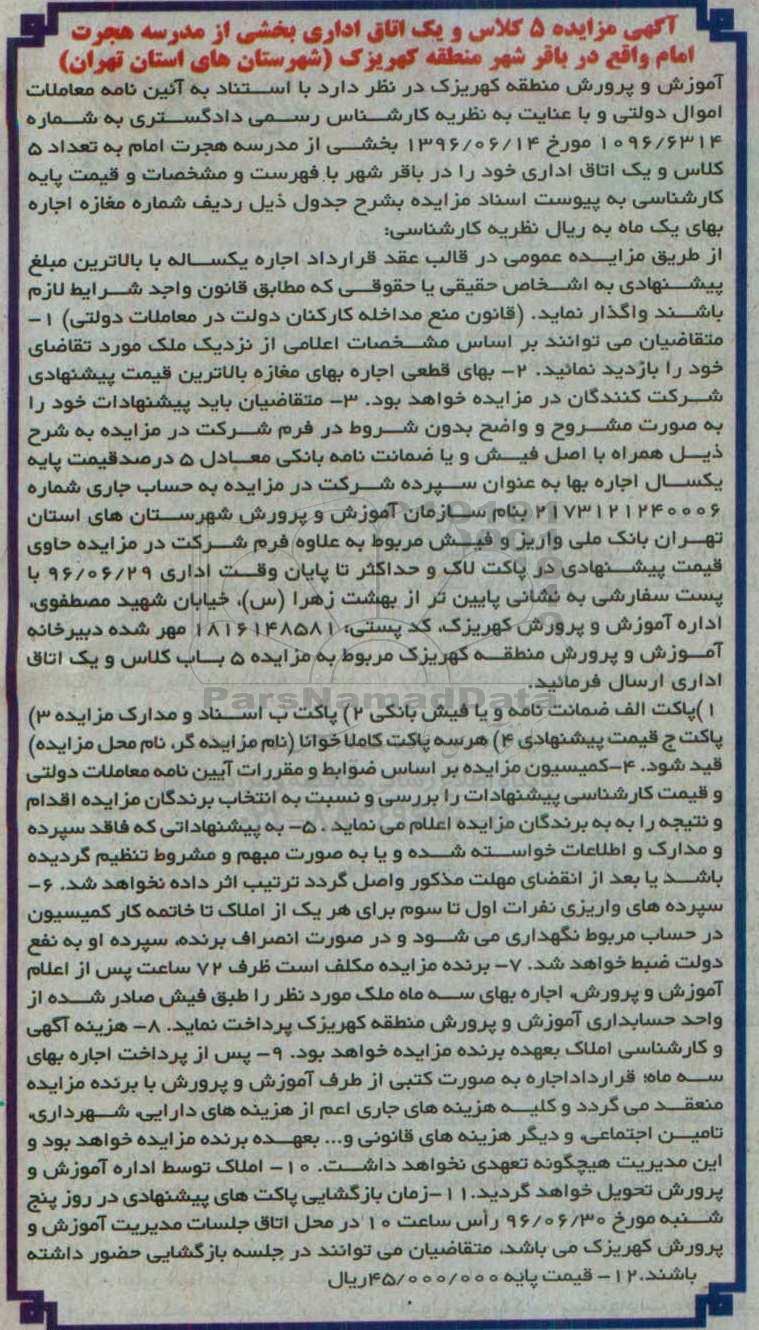 آگهی مزایده ۵ کلاس و یک اتاق اداری بخشی از مدرسه هجرت
امام واقع در باقر شهر منطقه کهریزک (شهرستان های استان تهران)
آموزش و پرورش منطقه کهریزک در نظر دارد با استناد به آئین نامه معاملات
اموال دولتی و با عنایت به نظریه کارشناس رسمی دادگستری به شماره
۱۰۹۶/۶۳۱۴ مورخ ۱۳۹۶/۰۶/۱۴ بخشی از مدرسه هجرت امام به تعداد ۵
کلاس و یک اتاق اداری خود را در باقر شهر با فهرست و مشخصات و قیمت پایه
کارشناسی به پیوست اسناد مزایده بشرح جدول ذیل ردیف شماره مغازه اجاره
بهای یک ماه به ریال نظریه کارشناسی:
از طریق مزایده عمومی در قالب عقد قرارداد اجاره یکساله با بالاترین مبلغ
پیشنهادی به اشخاص حقیقی یا حقوقی که مطابق قانون واجد شرایط لازم
باشند واگذار نماید. (قانون منع مداخله کارکنان دولت در معاملات دولتی) ۱-
متقاضیان می توانند بر اساس مشخصات اعلامی از نزدیک ملک مورد تقاضای
خود را بازدید نمائید. ۲- بهای قطعی اجاره بهای مغازه بالاترین قیمت پیشنهادی
شرکت کنندگان در مزایده خواهد بود. ۳- متقاضیان باید پیشنهادات خود را
به صورت مشروح و واضح بدون شروط در فرم شرکت در مزایده به شرح
ذیل همراه با اصل فیش و یا ضمانت نامه بانکی معادل ۵ درصدقیمت پایه
یکسال اجاره بها به عنوان سپرده شرکت در مزایده به حساب جاری شماره
۲۱۷۳۱۲۱۲۴۰۰۰۶ بنام سازمان آموزش و پرورش شهرستان های استان
تهران بانک ملی واریز و فیش مربوط به علاوه فرم شرکت در مزایده حاوی
قیمت پیشنهادی در پاکت لاک و حداکثر تا پایان وقت اداری ۹۶/۰۶/۲۹ با
پست سفارشی به نشانی پایین تر از بهشت زهرا (س)، خیابان شهید مصطفوی،
اداره آموزش و پرورش کهریزک، کد پستی: ۱۸۱۶۱۴۸۵۸۱ مهر شده دبیرخانه
آموزش و پرورش منطقه کهریزک مربوط به مزایده ۵ باب کلاس و یک اتاق
اداری ارسال فرمائید.
ParsNamadData
۱)پاکت الف ضمانت نامه و یا فیش بانکی ۲) پاکت ب اسناد و مدارک مزایده ۳)
پاکت ج قیمت پیشنهادی ۴) هرسه پاکت کاملا خوانا (نام مزایده گر، نام محل مزایده)
قید شود. ۴-کمیسیون مزایده بر اساس ضوابط و مقررات آیین نامه معاملات دولتی
و قیمت کارشناسی پیشنهادات را بررسی و نسبت به انتخاب برندگان مزایده اقدام
و نتیجه را به به برندگان مزایده اعلام می نماید. ۵- به پیشنهاداتی که فاقد سپرده
و مدارک و اطلاعات خواسته شده و یا به صورت مبهم و مشروط تنظیم گردیده
باشد یا بعد از انقضای مهلت مذکور واصل گردد ترتیب اثر داده نخواهد شد. ۶-
سپرده های واریزی نفرات اول تا سوم برای هر یک از املاک تا خاتمه کار کمیسیون
در حساب مربوط نگهداری می شود و در صورت انصراف برنده، سپرده او به نفع
دولت ضبط خواهد شد. ۷- برنده مزایده مکلف است ظرف ۷۲ ساعت پس از اعلام
آموزش و پرورش، اجاره بهای سه ماه ملک مورد نظر را طبق فیش صادر شده از
واحد حسابداری آموزش و پرورش منطقه کهریزک پرداخت نماید. ۸- هزینه آگهی
و کارشناسی املاک بعهده برنده مزایده خواهد بود. ۹- پس از پرداخت اجاره بهای
سه ماه؛ قرارداداجاره به صورت کتبی از طرف آموزش و پرورش با برنده مزایده
منعقد می گردد و کلیه هزینه های جاری اعم از هزینه های دارایی، شهرداری،
تامین اجتماعی، و دیگر هزینه های قانونی و... بعهده برنده مزایده خواهد بود و
این مدیریت هیچگونه تعهدی نخواهد داشت. ۱۰- املاک توسط اداره آموزش و
پرورش تحویل خواهد گردید.۱۱-زمان بازگشایی پاکت های پیشنهادی در روز پنج
شنبه مورخ ۹۶/۰۶/۳۰ رأس ساعت ۱۰ در محل اتاق جلسات مدیریت آموزش و
پرورش کهریزک می باشد، متقاضیان می توانند در جلسه بازگشایی حضور داشته
باشند.۱۲- قیمت پایه ۴۵/۰۰۰/۰۰۰ریال